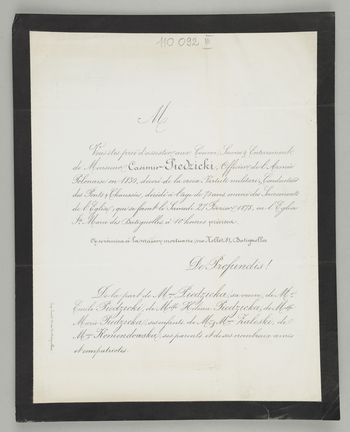 110.092 III
M
Vous êtes prié d'assister aux Convoi, Service & Enterrement
de Monsieur Casimir Piedzicki, Officier de l'Armée
Polonaise en 1831, décoré de la croix Virtuti militari, Conducteur
des Ponts & Chaussées, décédé à l'âge de 75 ans, muni des Sacrements
de l'Eglise; qui se feront le Samedi 27 Février 1875, en l'Eglise
Ste Marie des Batignolles à 10 heures précises.
On se réunira à la maison mortuaire, rue Nollet, 51, Batignolles
De Profundis!
De la part de Mme Piedzicka, sa veuve, de Mr
Emile Piedzicki, de Melle Hélène Piedzicka, de Melle
Marie Piedzicka, ses enfants, de Mr & Mme Zaleski, de
Mme Komendowska, ses parents et de ses nombreux amis
et compatriotes.